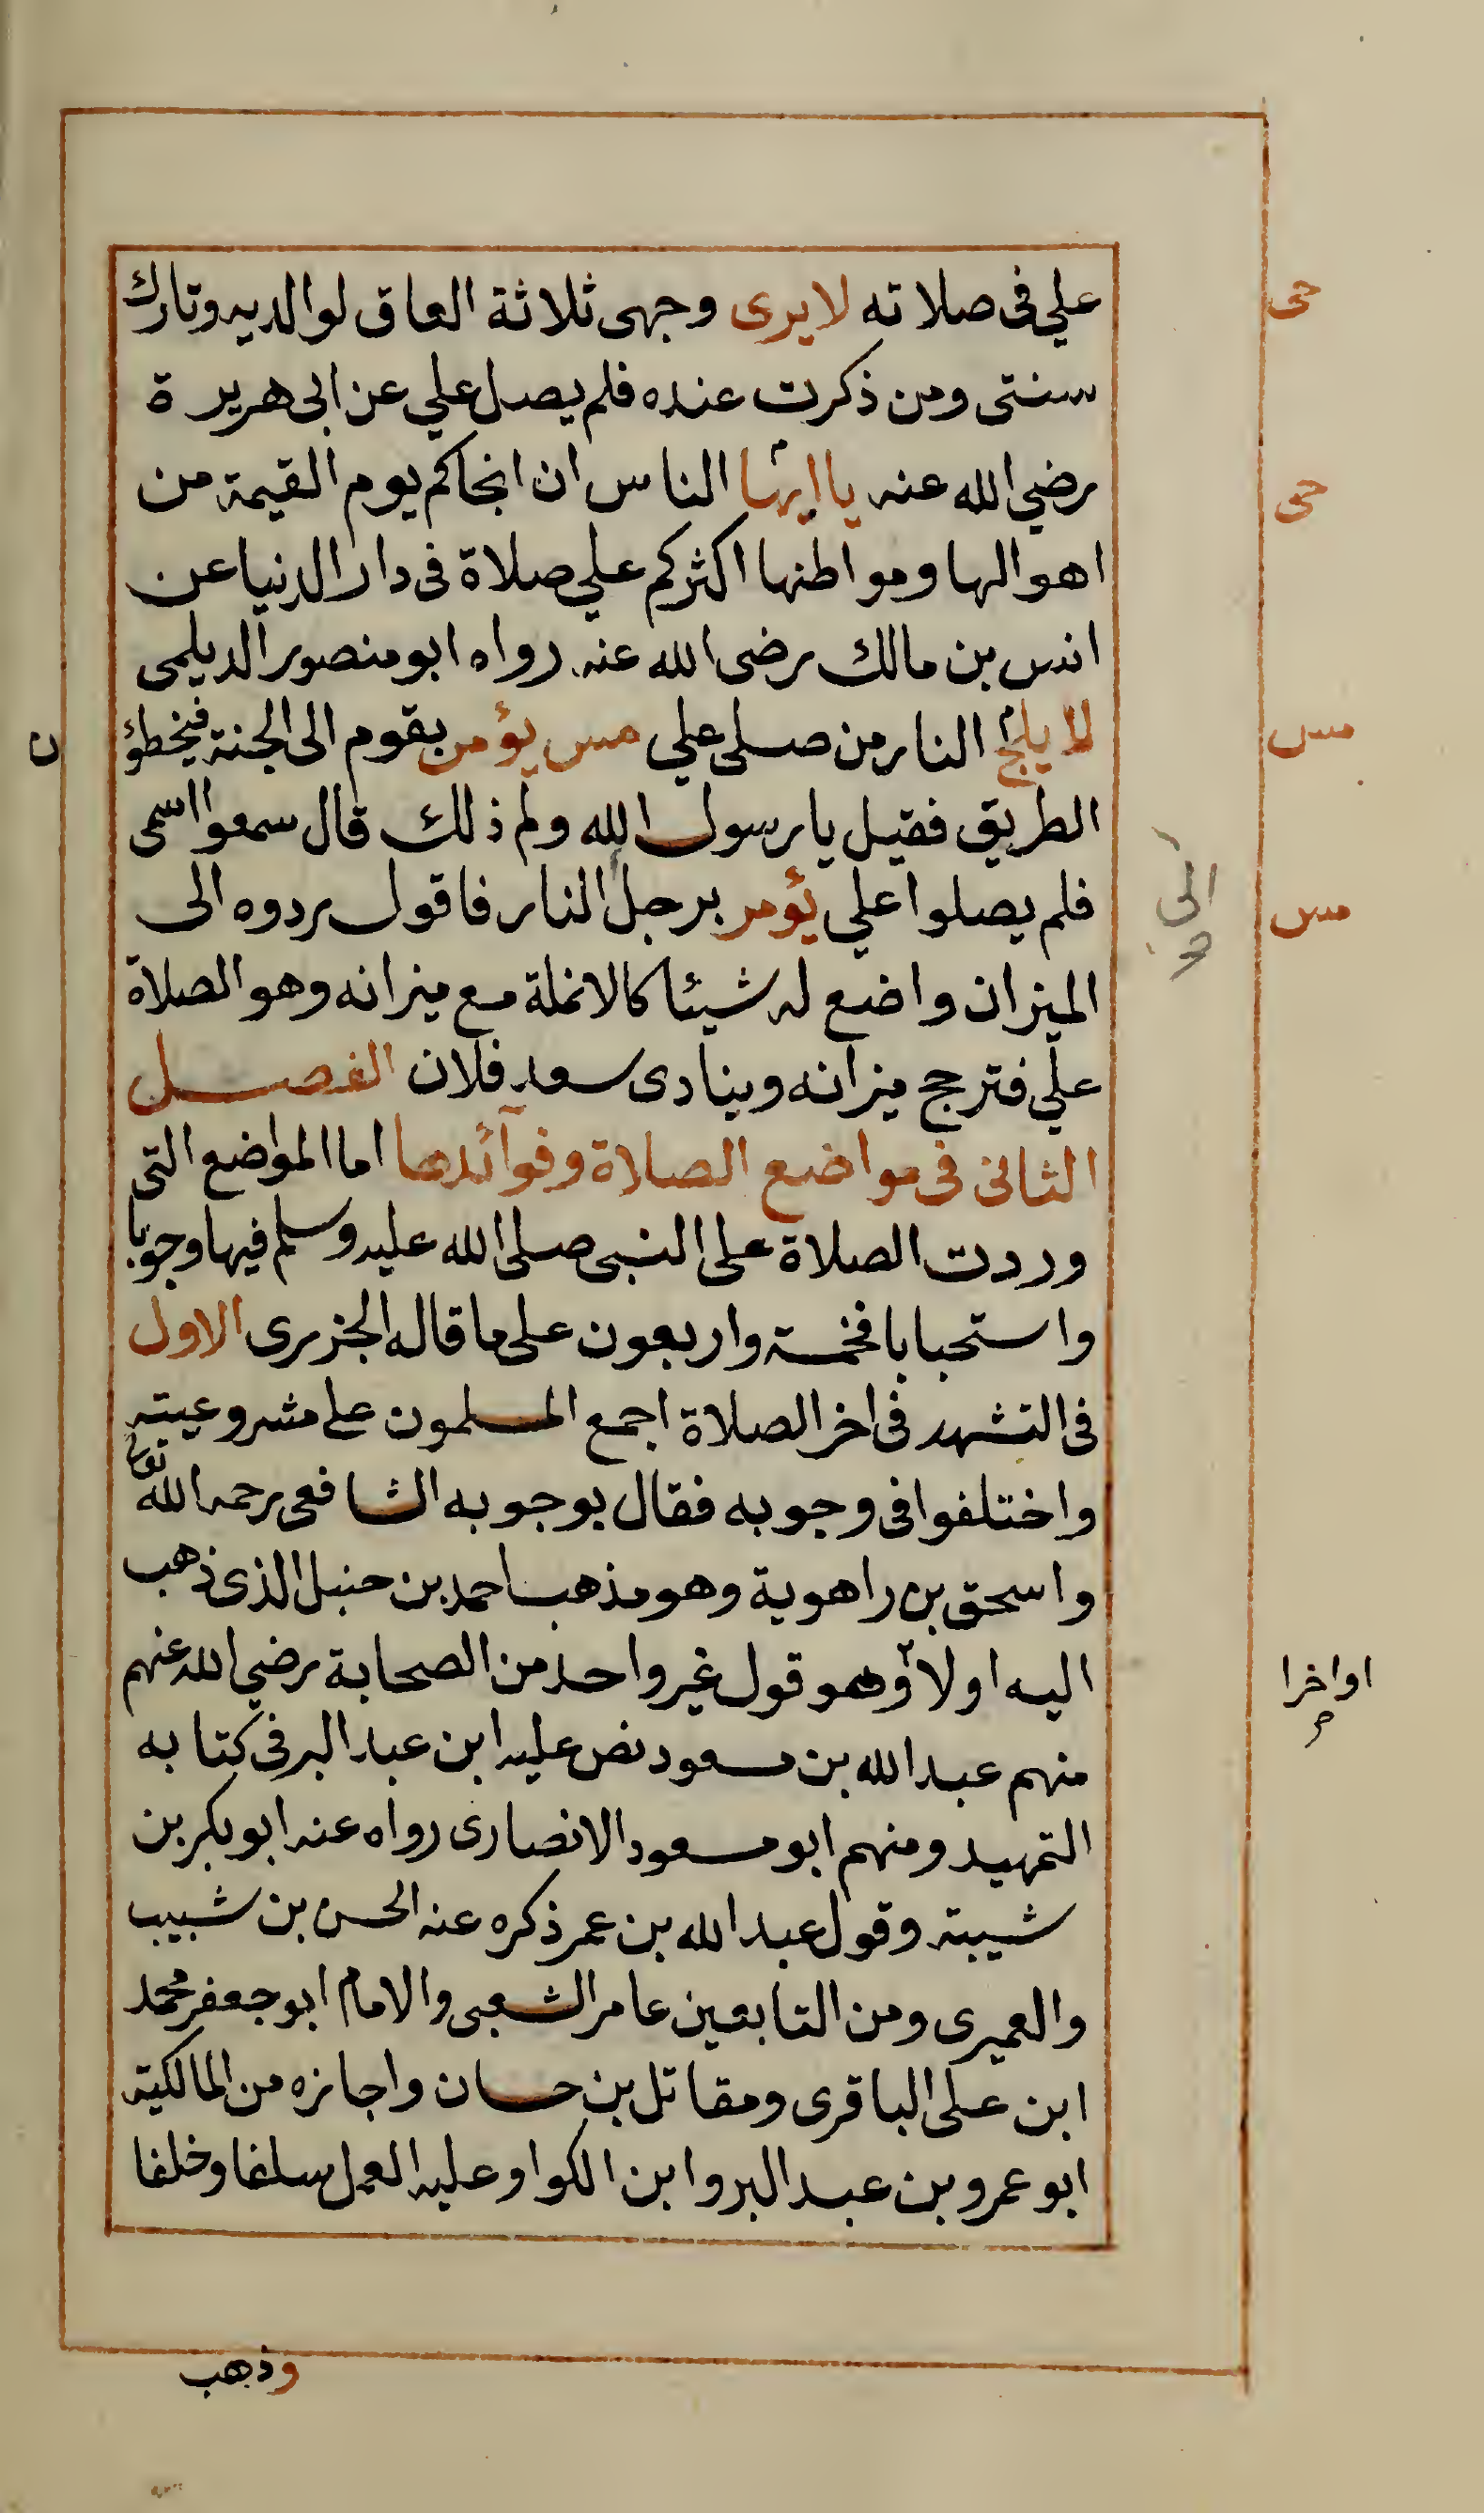 علي في صلاته لا يرى وجهى ثلاثة العاق لوالديه وتارك
حى
سنتى ومن ذكرت عنده فلم يصل علي عن ابى هريرة
رضي الله عنه يا ايها الناس ان انجاكم يوم القيمة من
حى
اهوالها ومواطنها اكثركم علي صلاة فى دار الدنيا عن
انس بن مالك رضى الله عنه رواه ابو منصور الديلمى
لا يلج النار من صلى علي مس يؤمر بقوم الى الجنة فيخطؤ
ن
مس
الطريق فقيل يا رسول الله ولم ذلك قال سمعوا اسمى
فلم يصلوا علي يؤمر برجل النار فاقول ردوه الى
الى
مس
الميزان واضع له شيئا كالانملة مع ميزانه وهو الصلاة
علي فترجح ميزانه وينادى سعد فلان الفصل
الثانى فى مواضع الصلاة وفوآئدها اما المواضع التى
وردت الصلاة على النبى صلى الله عليه وسلم فيها وجوبا
واستحبابا فخمسة واربعون على ما قاله الجزرى الاول
فى التشهد فى اخر الصلاة اجمع المسلمون على مشروعيته
واختلفوا فى وجوبه فقال بوجوبه الشافعى رحمه الله تعالى
واسحق بن راهوية وهو مذهب احمد بن حنبل الذى ذهب
اليه اولا وهو قول غير واحد من الصحابة رضي الله عنهم
اواخرا
منهم عبد الله بن مسعود نص عليه ابن عبد البر فى كتابه
التمهيد ومنهم ابو مسعود الانصارى رواه عنه ابو بكر بن
شيبة وقول عبد الله بن عمر ذكره عنه الحسن بن شبيب
والعميرى ومن التابعين عامر الشعبى والامام ابو جعفر محمد
ابن على الباقرى ومقاتل بن حسان واجازه من المالكية
ابو عمرو بن عبد البر وابن الكوا وعليه العمل سلفا وخلفا
وذهب